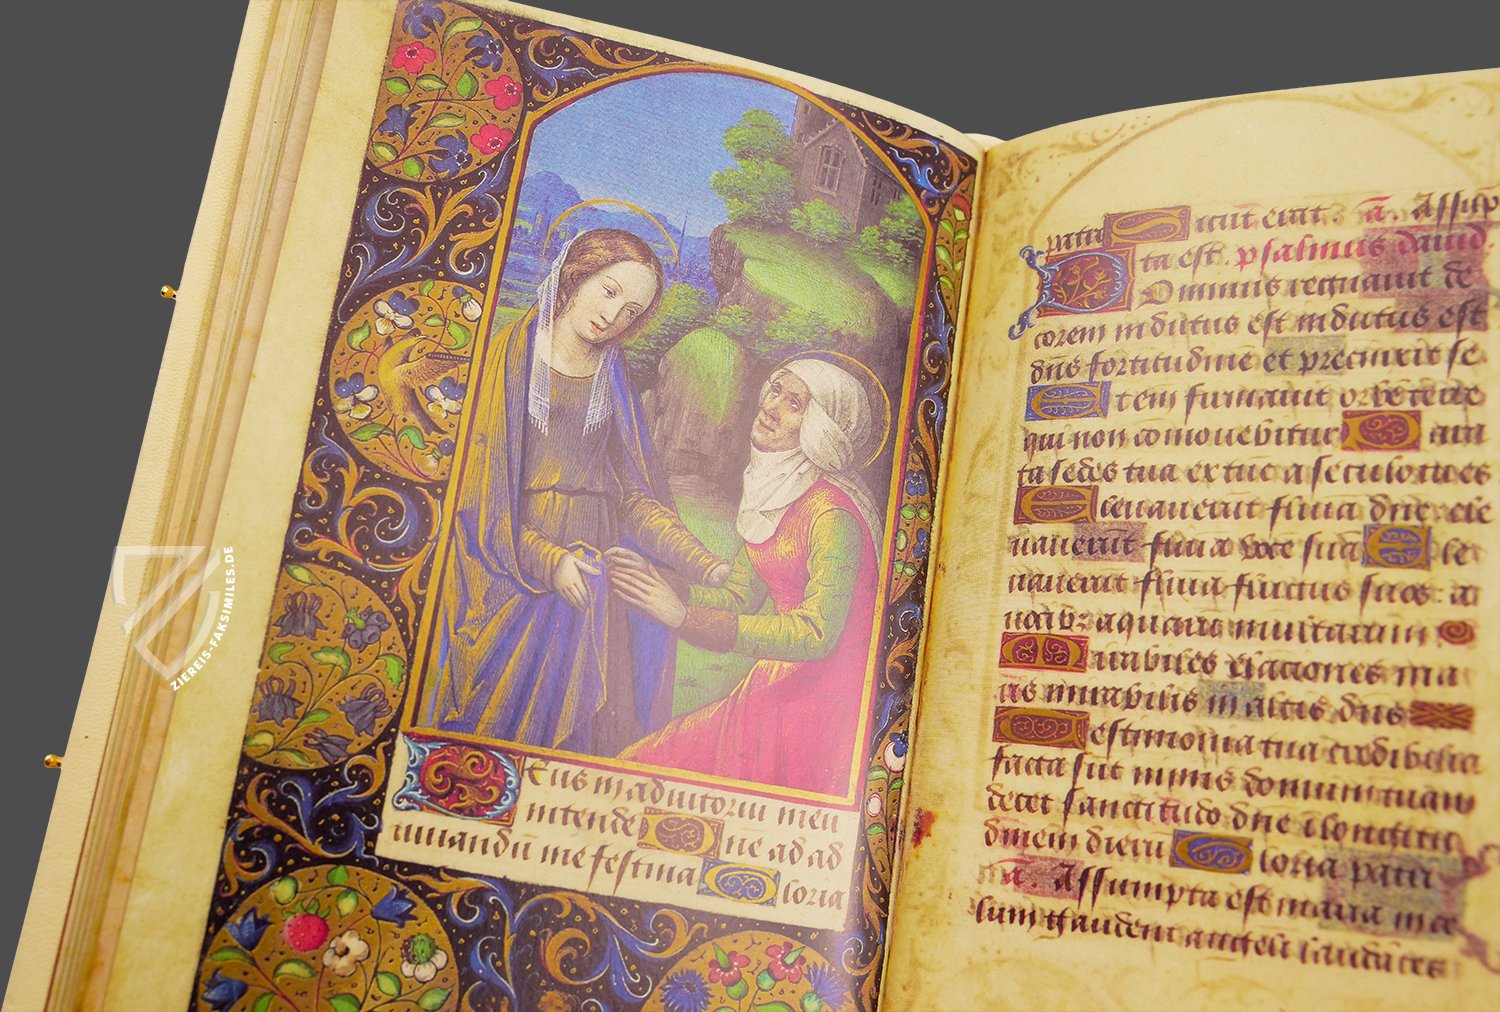 ZIEREIS-FAKSIMILES.DE
Eus in adiutoriu meu
intende Dne ad ad
iuuandu me festina Gloria
patri Sicut erat. a. Assup
ta est. psalmus dauid.
Dominus regnauit de
corem indutus est indutus est
dns fortitudinem et precinxit se
Etem firmauit orbe terre
qui non comouebitur Para
ta sedes tua ex tuc a seculo tu es
Eleuauerut flumina dne: ele
uauerut flumina voce sua Ele
uauerut flumina fluctus suos: a
uocib: aquaru multarum
Mirabiles elationes ma
ris mirabilis in altis dns
Testimonia tua credibilia
facta sut nimis domum tuam
decet sanctitudo dne i longitu
dinem dieru Gloria patri
a. Assumpta est maria in ce
lum gaudent angeli laudates